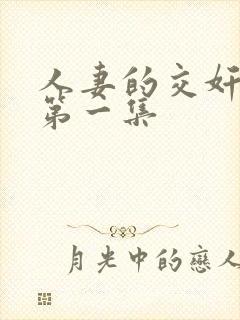 人妻的交奸
第一集
月光中的戀人